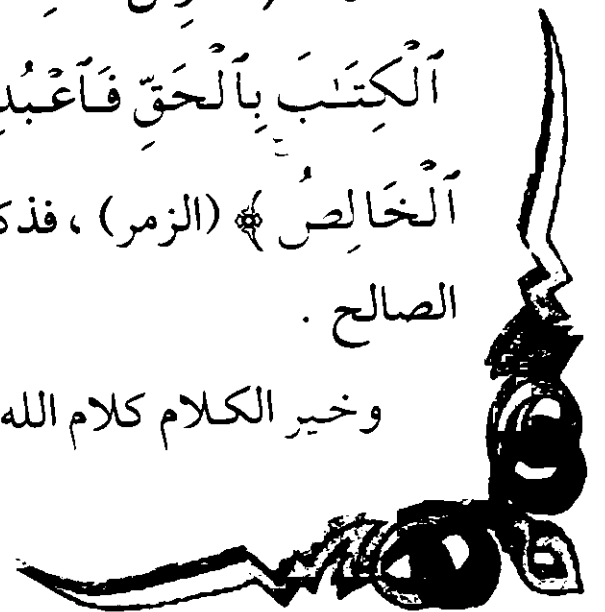 ٱلْكِتَـٰبَ بِٱلْحَقِّ فَٱعْبُدِ
ٱلْخَالِصُ ۚ ﴾ (الزمر) ، فذك
الصالح .
وخير الكلام كلام الله